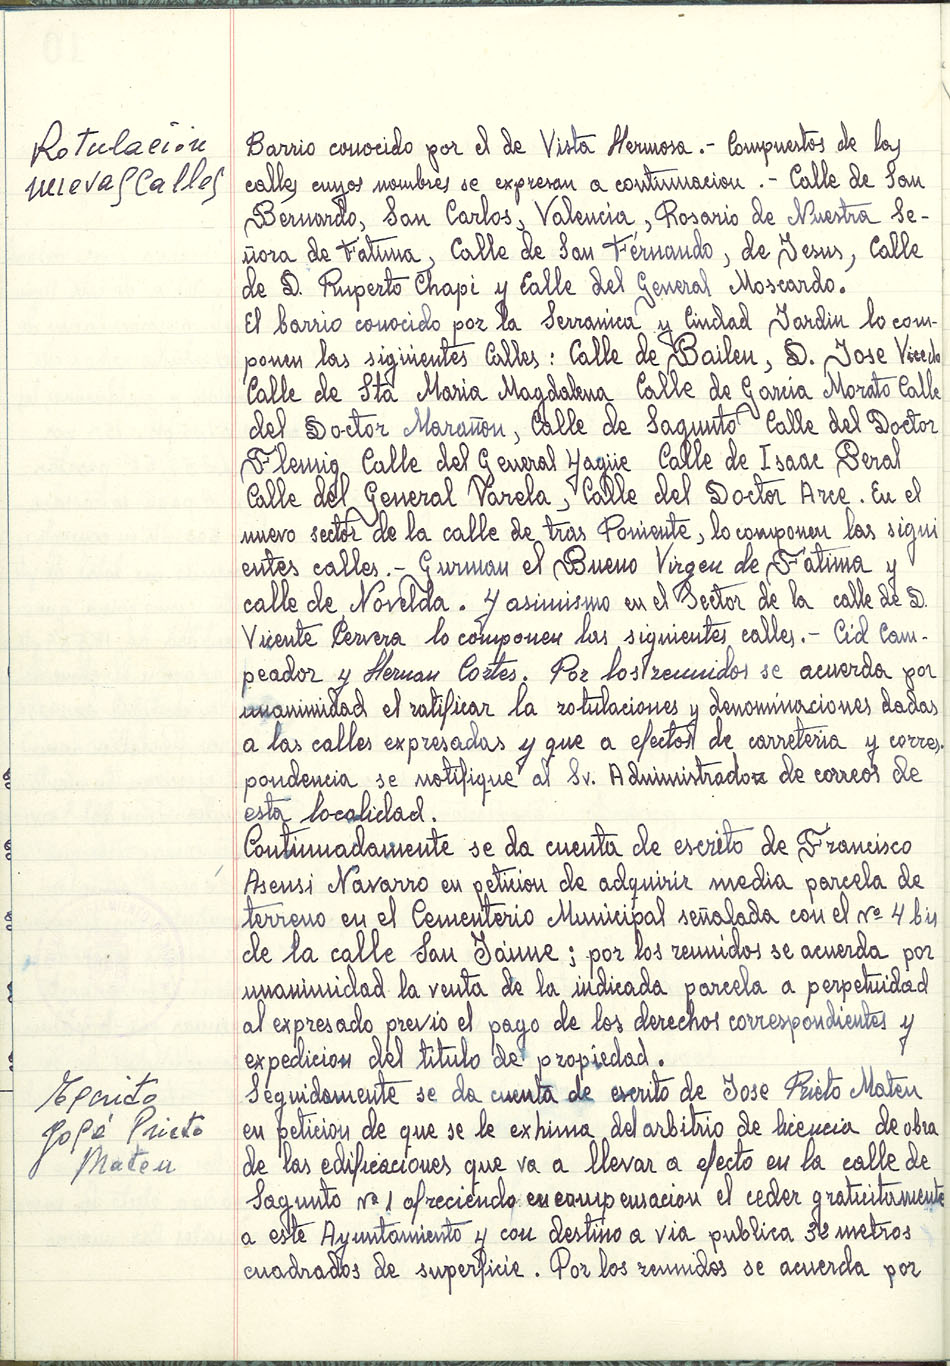 Rotulación
nuevas Calles
Barrio conocido por el de Vista Hermosa.- Compuestos de las
calles cuyos nombres se expresan a continuacion.- Calle de San
Bernardo, San Carlos, Valencia, Rosario de Nuestra Se-
ñora de Fátima, Calle de San Férnando, de Jesus, Calle
de D. Ruperto Chapi y Calle del General Moscardo.
El barrio conocido por la Serranica y Ciudad Jardin lo com-
ponen las siguientes Calles: Calle de Bailen, D. Jose Vicedo
Calle de Sta Maria Magdalena Calle de Garcia Morato Calle
del Doctor Marañon, Calle de Sagunto Calle del Doctor
Flemig Calle del General Yagüe Calle de Isaac Peral
Calle del General Varela, Calle del Doctor Arce. En el
nuevo sector de la calle de tras Poniente, lo componen las sigui
entes calles.- Gurman el Bueno Virgen de Fátima y
calle de Novelda. Y asimismo en el Sector de la calle de D.
Vicente Cervera lo componen las siguientes calles.- Cid Cam-
peador y Hernan Cortes. Por los reunidos se acuerda por
unanimidad el ratificar la rotulaciones y denominaciones dadas
a las calles expresadas y que a efectos de carreteria y corres-
pondencia se notifique al Sr. Administrador de correos de
esta localidad.
Continuadamente se da cuenta de escrito de Francisco
Asensi Navarro en peticion de adquirir media parcela de
terreno en el Cementerio Municipal señalada con el nº 4 bis
de la calle San Jaime; por los reunidos se acuerda por
unanimidad la venta de la indicada parcela a perpetuidad
al expresado previo el pago de los derechos correspondientes y
expedicion del titulo de propiedad.
Escrito
José Prieto
Mateu
Seguidamente se da cuenta de escrito de Jose Prieto Mateu
en peticion de que se le exhima del arbitrio de licencia de obra
de las edificaciones que va a llevar a efecto en la calle de
Sagunto nº 1 ofreciendo en compensacion el ceder gratuitamente
a este Ayuntamiento y con destino a via publica 32 metros
cuadrados de superficie. Por los reunidos se acuerda por